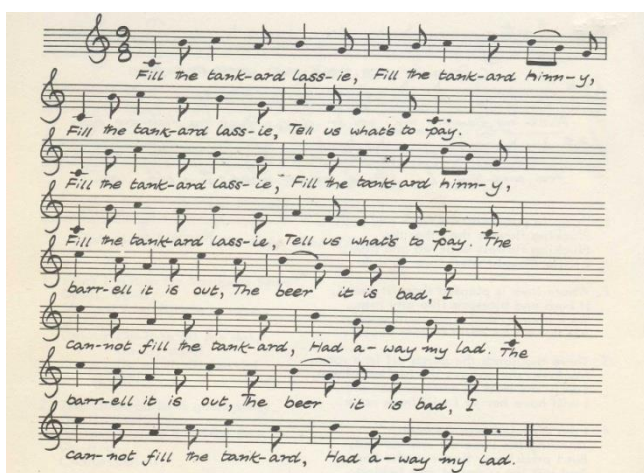 Fill the tank-ard lass-ie, Fill the tank-ard hinn-y,
Fill the tank-ard lass-ie, Tell us what's to pay.
Fill the tank-ard lass-ie, Fill the tank-ard hinn-y,
Fill the tank-ard lass-ie, Tell us what's to pay. The
barr-ell it is out, The beer it is bad, I
can-not fill the tank-ard, Had a-way my lad. The
barr-ell it is out, The beer it is bad, I
can-not fill the tank-ard, Had a-way my lad.